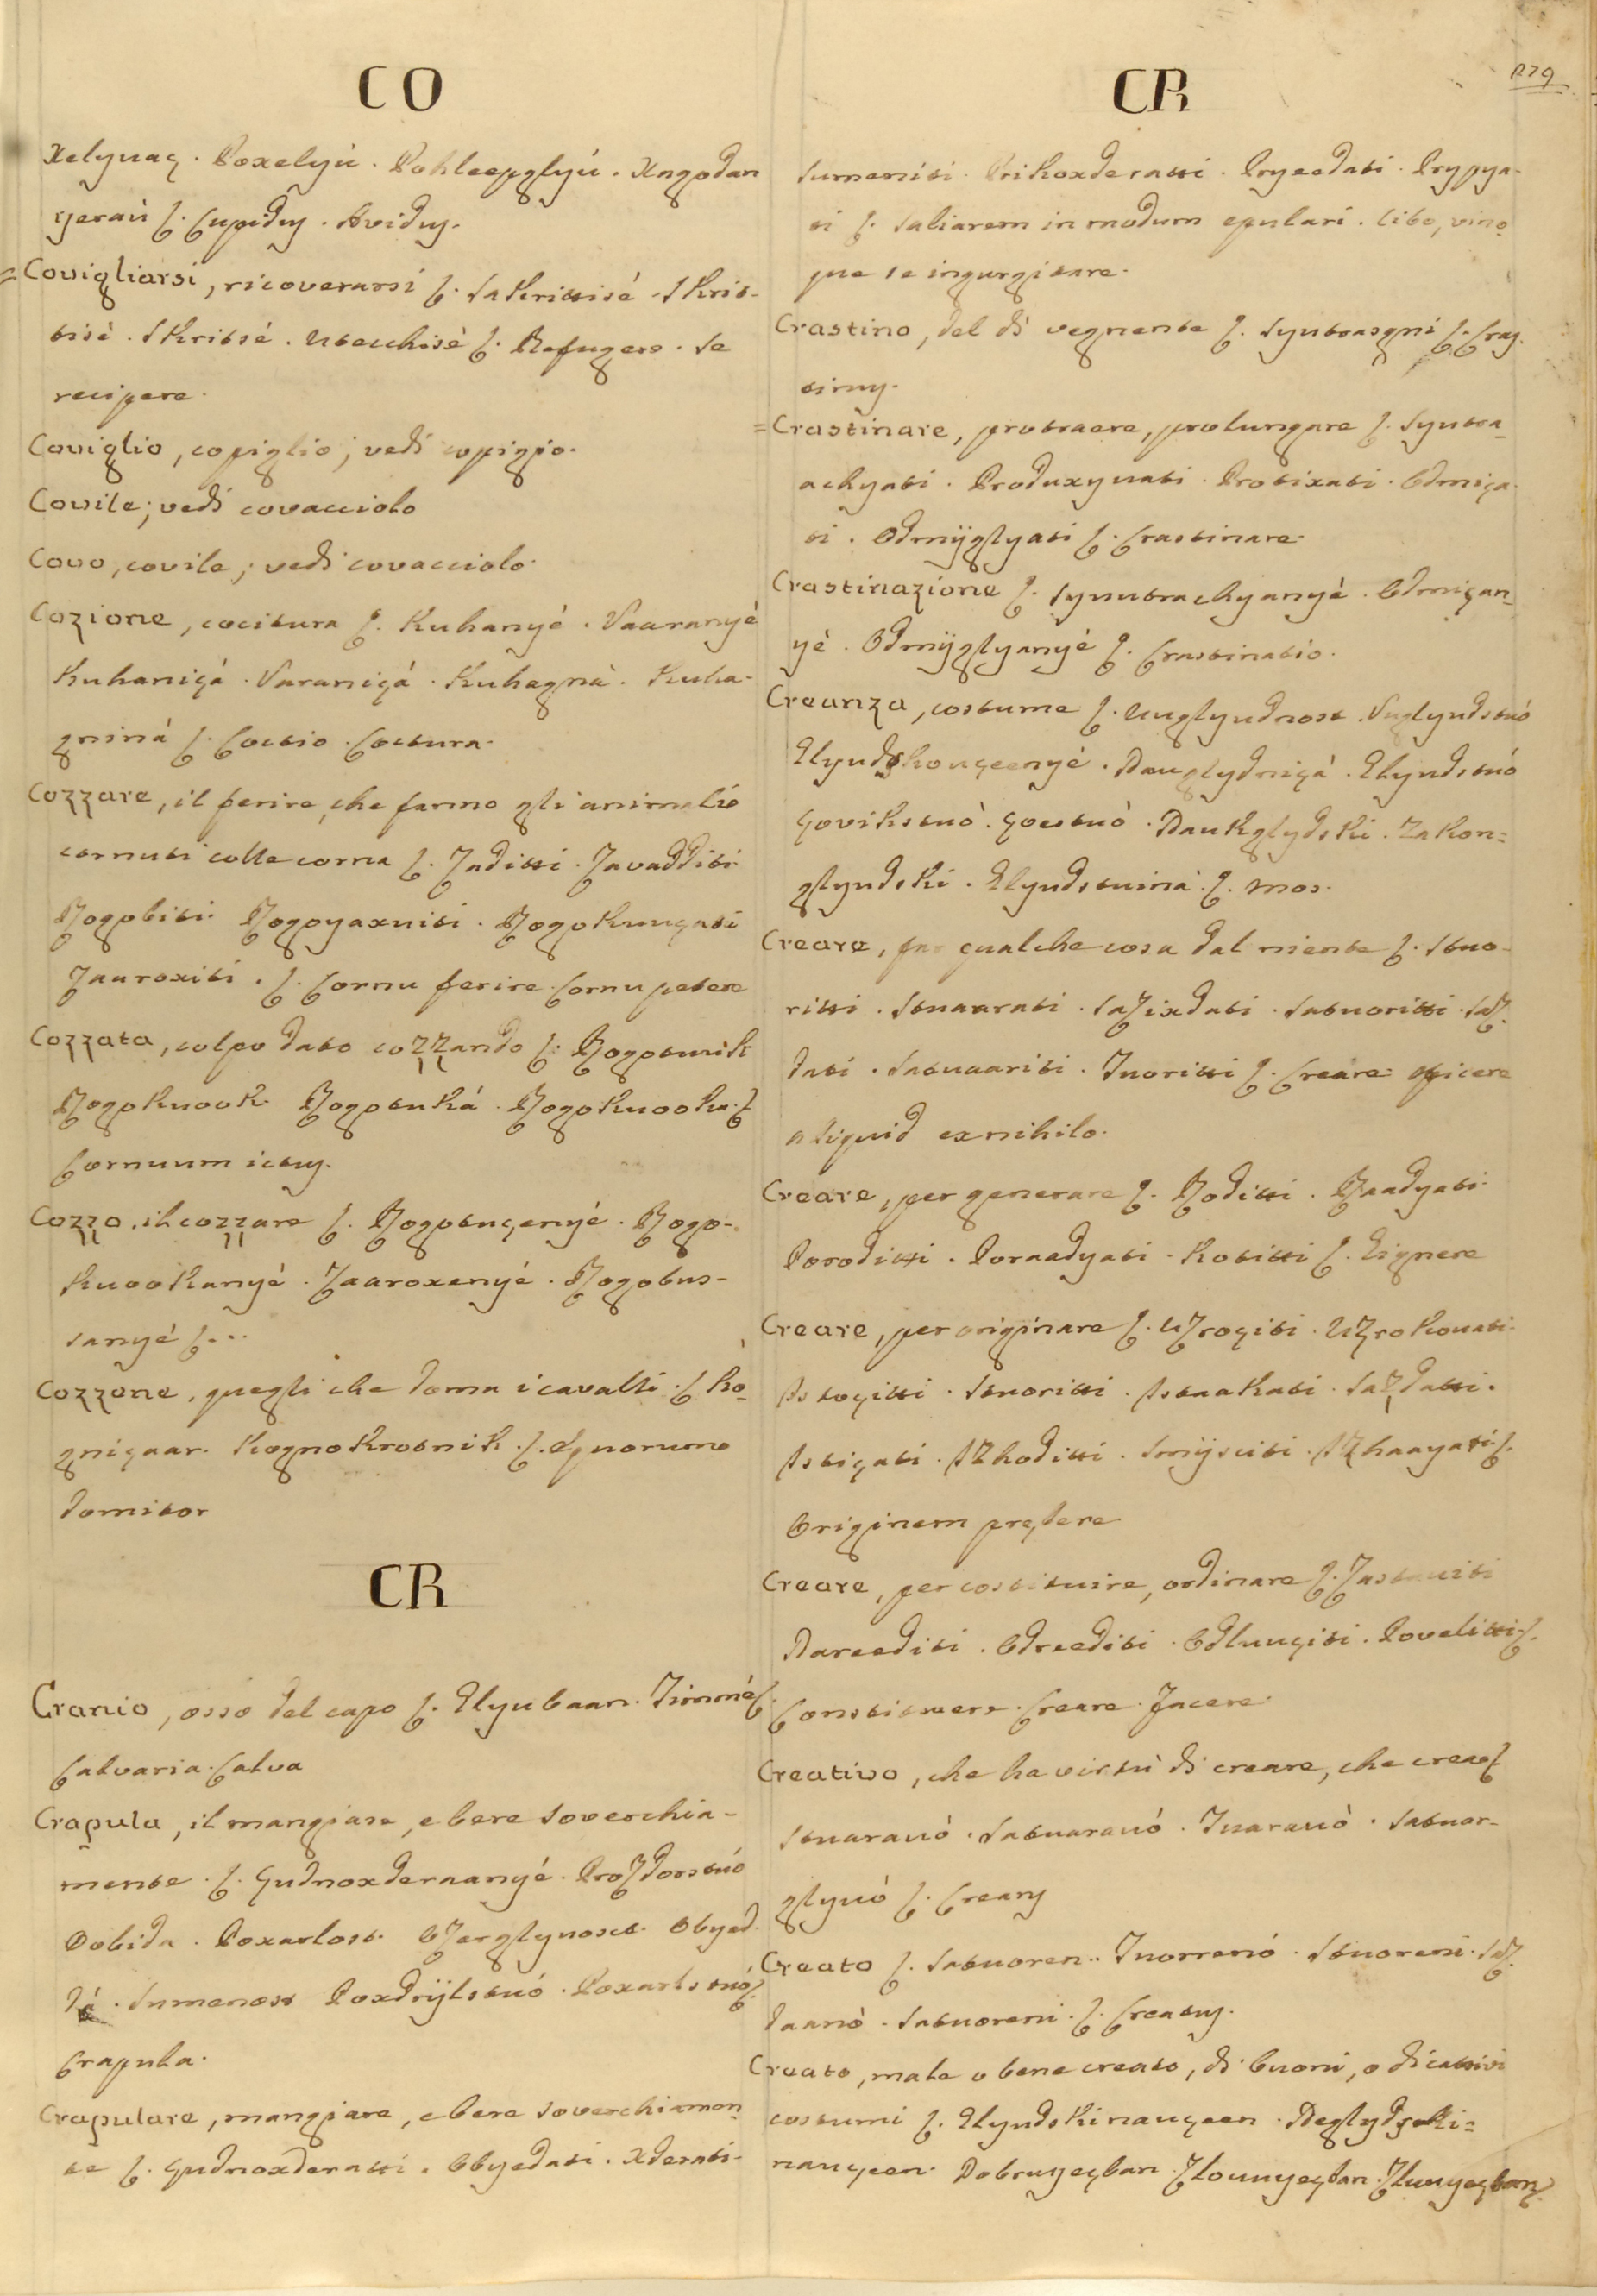 CO
xelynaç . Poxelyú . Pohleepglyú . Xngodan
yeraú ſ. Cupidus . Avidus.
= Covigliarsi, ricoverarsi ſ. Sakrittisé . Skrit-
tisè . Skritsé . Utecchisè ſ. Refugere . Se
recipere.
Coviglio, copiglio; vedi copiglio.
Covile; vedi covacciolo
Covo, covile; vedi covacciolo.
Cozione, cocitura ſ. Kuhanyé . Vaaranyé
Kuhaniçá . Varaniçá . Kuhagná . Kuha-
gniná ſ. Coctio . Coctura.
Cozzare, il ferire, che fanno gli animali
cornuti colle corna ſ. Zaditti . Zavadditi.
Rogobiti . Rogoyaxniti . Rogokuuçati
Zauroxiti . ſ. Cornu ferire . Cornu petere
Cozzata, colpo dato cozzando ſ. Rogotunik
Rogokuook . Rogotuká . Rogokuooka . ſ
Cornuum ictus.
Cozzo, il cozzare ſ. Rogotuçenyé . Rogo-
kuookanyé . Zaaroxenyé . Rogobus-
sanyé ſ...
Cozzone, quegli che doma i cavalli . ſ ko-
gniçaar . Kognokrotnik . ſ. Equorum
domitor
CR
Cranio, osso del capo ſ. Glyubaan . Timmé ſ.
Calvaria . Calva
Crapula, il mangiare, e bere soverchia-
mente . ſ. Çudnoxderaanyé . Proždorstuó
Dobida . Poxarlost . Ožerglynost . Obyed-
dá . Sumenost Poxdrijlstuó . Poxarlstuó ſ.
Crapula.
Crapulare, mangiare, e bere soverchiamen-
te ſ. Çudnoxderatti . Obyedati . Xderati.
CR
279
Sumeniti . Prikoxderatti . Pryeedati . Prypya-
ti ſ. Saliarem in modum epulari . Cibo, vino-
que se ingurgitare.
Crastino, del dì vegnente ſ. Syutrasgni ſ. Cras-
tinus.
= Crastinare, protraere, prolungare ſ. Syutra-
achyati . Produxynati . Protixati . Odmiça-
ti . Odmijglyati ſ. Crastinare.
Crastinazione ſ. Syuutrachyanyé . Odmiçan-
yè . Odmijglyanyé ſ. Crastinatio.
Creanza, costume ſ. Uuglyudnost . Vuglyudstuó
Glyudskouçeenyé . Dauglydniçá . Glyudstuó
Çovikstuò . Çoestuò . Daukglydski . Zakon-
glyudski . Glyudstuiná . ſ. Mos.
Creare, far qualche cosa dal niente ſ. Stuo-
ritti . Stuaarati . Sažixdati . Satuoritti . Saž-
dati . Satuaariti . Tuoritti ſ. Creare. Efficere
aliquid ex nihilo.
Creare, per generare ſ. Roditti . Raadyati.
Poroditti . Poraadyati . Kotitti ſ. Gignere
Creare, per originare ſ. Užroçiti . Užrokouati.
Istoçitti . Stuoritti . Istaakati . Saždatti.
Istiçati . Izhoditti . Smijsciti . Izhaayati ſ.
Originem preſtere
Creare, per costituire, ordinare ſ. Zastauiti
Nareediti . Odreediti . Odluuçiti . Povelitti ſ.
Constituere . Creare . Facere.
Creativo, che ha virtù di creare, che crea ſ
Stuarauó . Satuarauó . Tuarauò . Satuor-
glyuó ſ. Creans
Creato ſ. Satuoren . Tuorrenó . Stuoreni . Saž-
daanò . Satuoreni . ſ. Creatus.
Creato, male o bene creato, di buoni, o di cattivi
costumi ſ. Glyudskinauçeen . Neglydski-
nauçeen . Dobruyeçban . Zlouuyeçban . Zluuyeçban ſ.